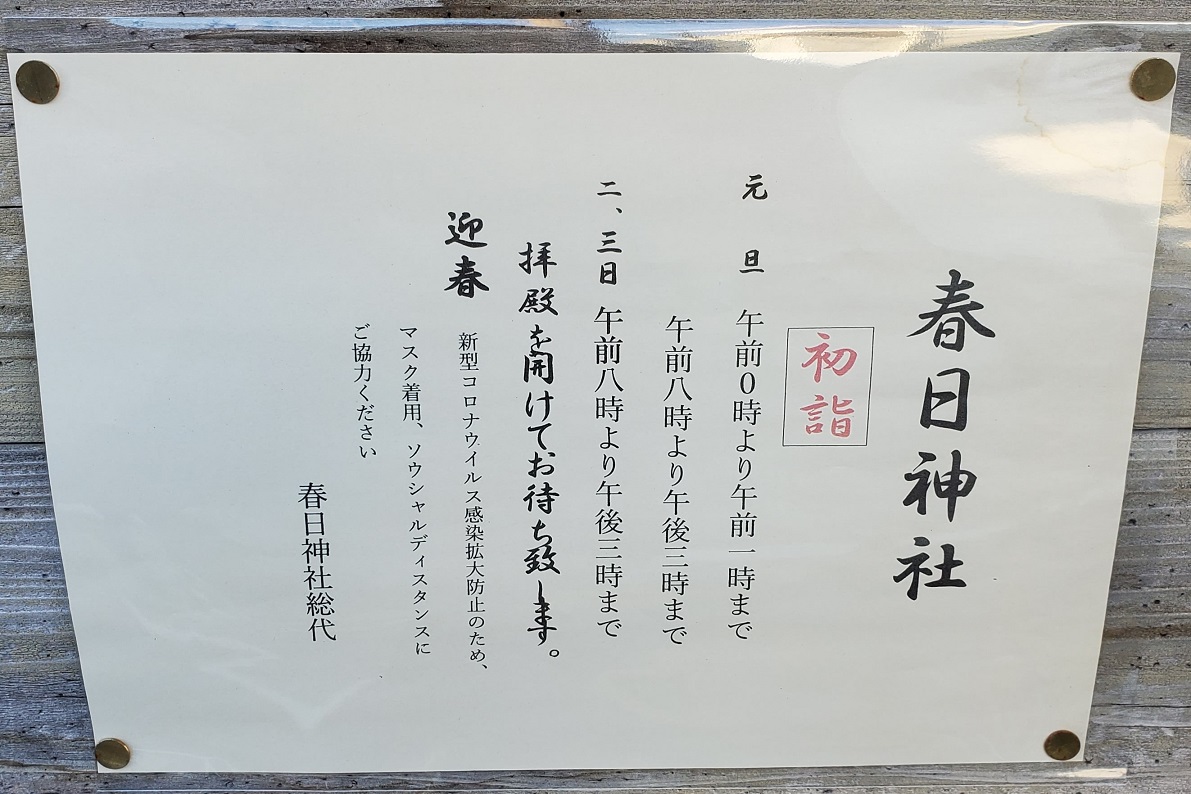 春日神社
初詣
元旦 午前0時より午前一時まで
午前八時より午後三時まで
二、三日 午前八時より午後三時まで
拝殿を開けてお待ち致します。
迎春
新型コロナウイルス感染拡大防止のため、
マスク着用、ソウシャルディスタンスに
ご協力ください
春日神社総代